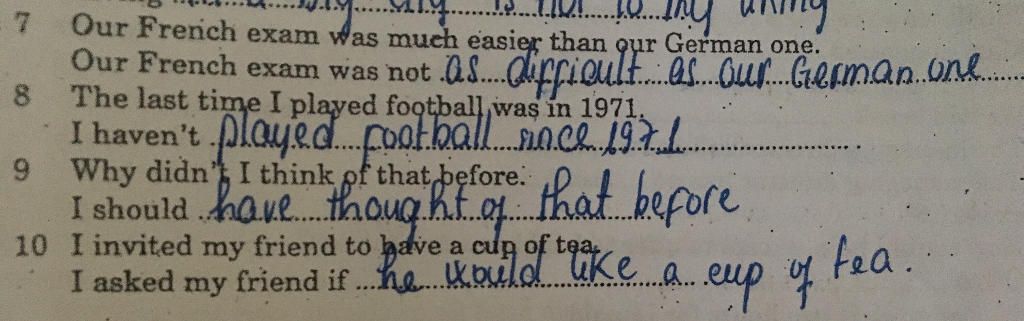 is not to my liking
7 Our French exam was much easier than our German one.
Our French exam was not as difficult as our German one
8 The last time I played football was in 1971.
I haven't played football since 1971.
9 Why didn't I think of that before.
I should have thought of that before
10 I invited my friend to have a cup of tea.
I asked my friend if he would like a cup of tea.